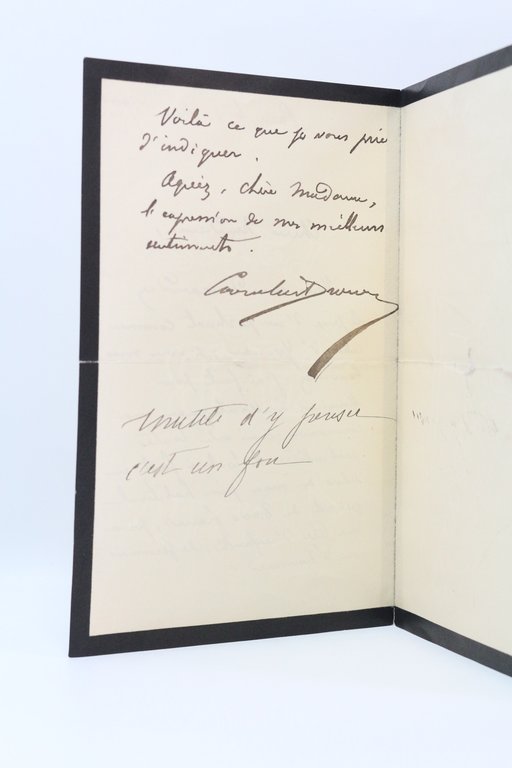 Voilà ce que je vous prie
d'indiquer.
Agréez, chère Madame,
l'expression de mes meilleurs
sentiments.
inutile d'y penser
c'est un fou